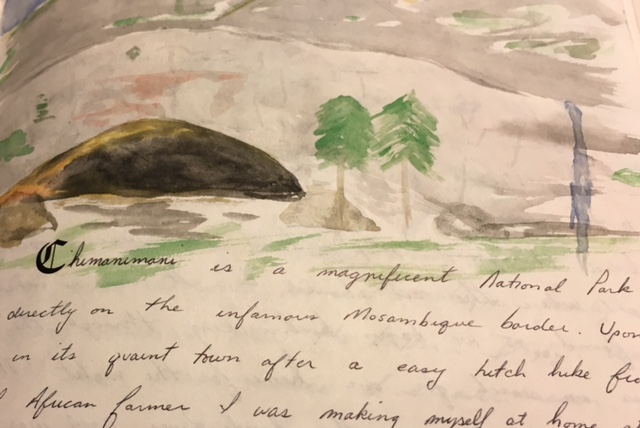 Chimanimani is a magnificent National Park
directly on the infamous Mosambique border. Upon
in its quaint town after a easy hitch hike
African farmer I was making myself at home